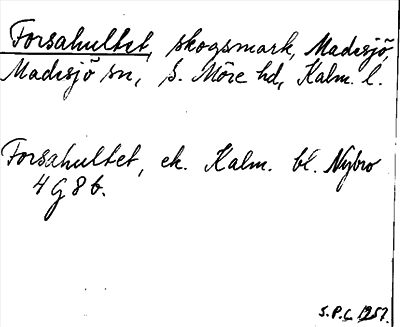 Forsahultet, skogsmark, Madesjö,
Madesjö sn, S. Möre hd, Kalm. l.
Forsahultet, ek. Kalm. bl. Nybro
4 G 8 b.
S.P.C. 1957.